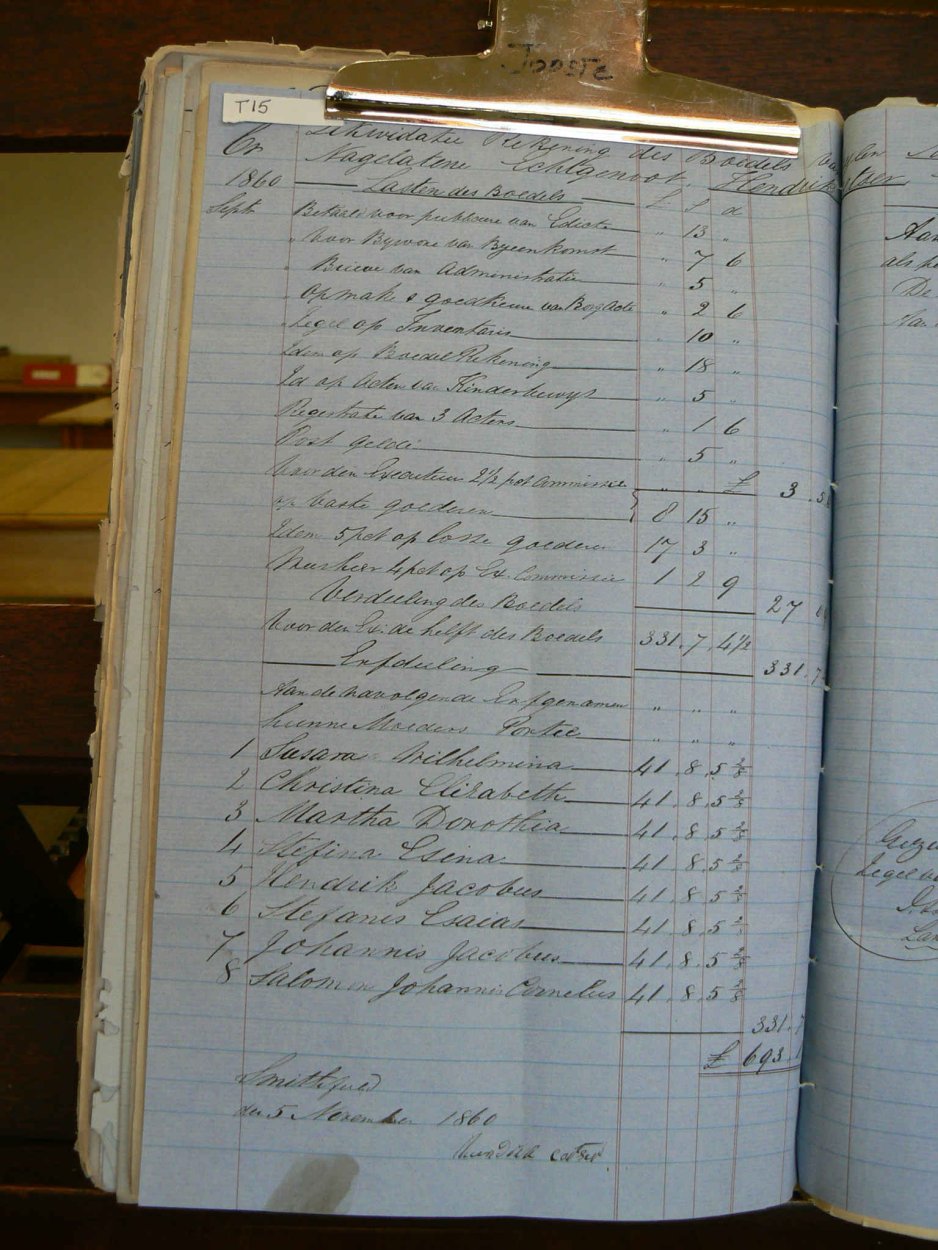 Jooste
T15
Likwidatie Rekening des Boedels
Cr Nagelatene Echtgenoot, Hendrik
1860 Lasten des Boedels £ s d
Sept Betaald voor publicatie van Edicte " 13 "
" Voor Bywone van Byeenkomst " 7 6
" Brieve van Administratie " 5 "
" Opmake & goedkeure van Borg Acte " 2 6
" Zegel op Inventaris " 10 "
Idem op Boedel Rekening " 18 "
Id op Acten van Kinderbewys " 5 "
Registratie van 3 Actens " 1 6
Post gelde " 5 "
Voor den Executeur 2½ pct Commissie " " £ 3.5
op vaste goederen 8 15 "
Idem 5 pct op losse goederen 17 3 "
Meesheer 4 pct op Ex. Commissie 1 2 9
Verdeeling des Boedels 27
Voor den Ex: de helft des Boedels 331.7.4½
Erfdeeling 331.7
Aan de navolgende Erfgenamen " " "
hunne Moeders Portie " " "
1 Susara Wilhelmina 41.8.5 2/8
2 Christina Elizabeth 41.8.5 2/8
3 Martha Dorothia 41.8.5 2/8
4 Stefina Esina 41.8.5 2/8
5 Hendrik Jacobus 41.8.5 2/8
6 Stefanis Esaias 41.8.5
7 Johannis Jacobus 41.8.5 2/8
8 Salomon Johannis Cornelus 41.8.5 2/8
331.7
£ 693.1
Smithfield
den 5 November 1860
Aan
als
De
Aan
Zegel